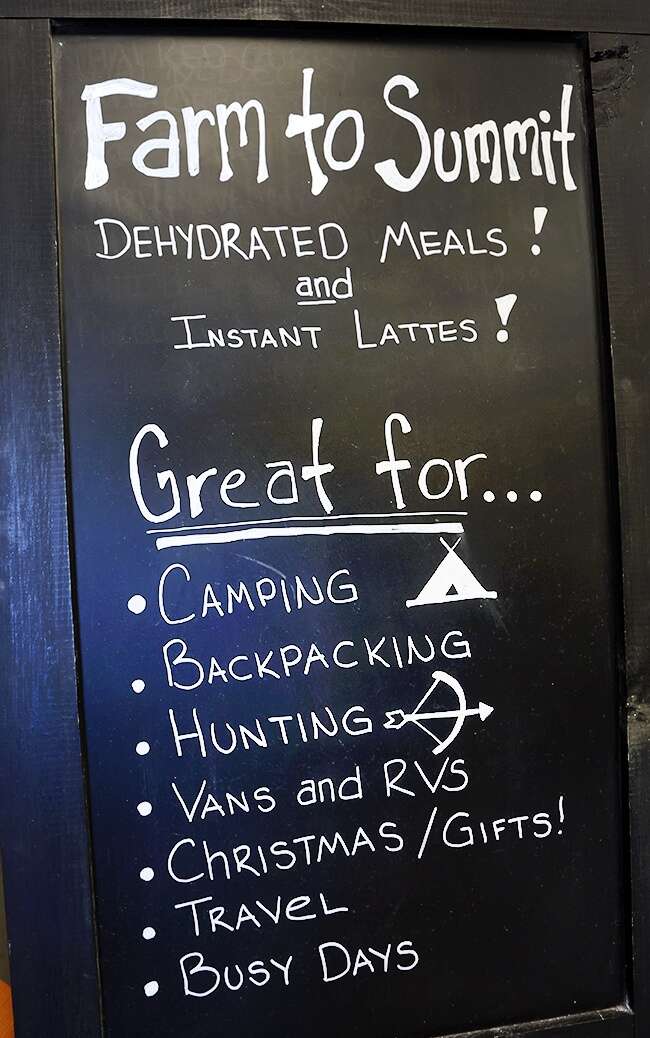 Farm to Summit
DEHYDRATED MEALS!
and
INSTANT LATTES!
Great for...
• CAMPING
• BACKPACKING
• HUNTING
• VANS and RVS
• CHRISTMAS/GIFTS!
• TRAVEL
• BUSY DAYS